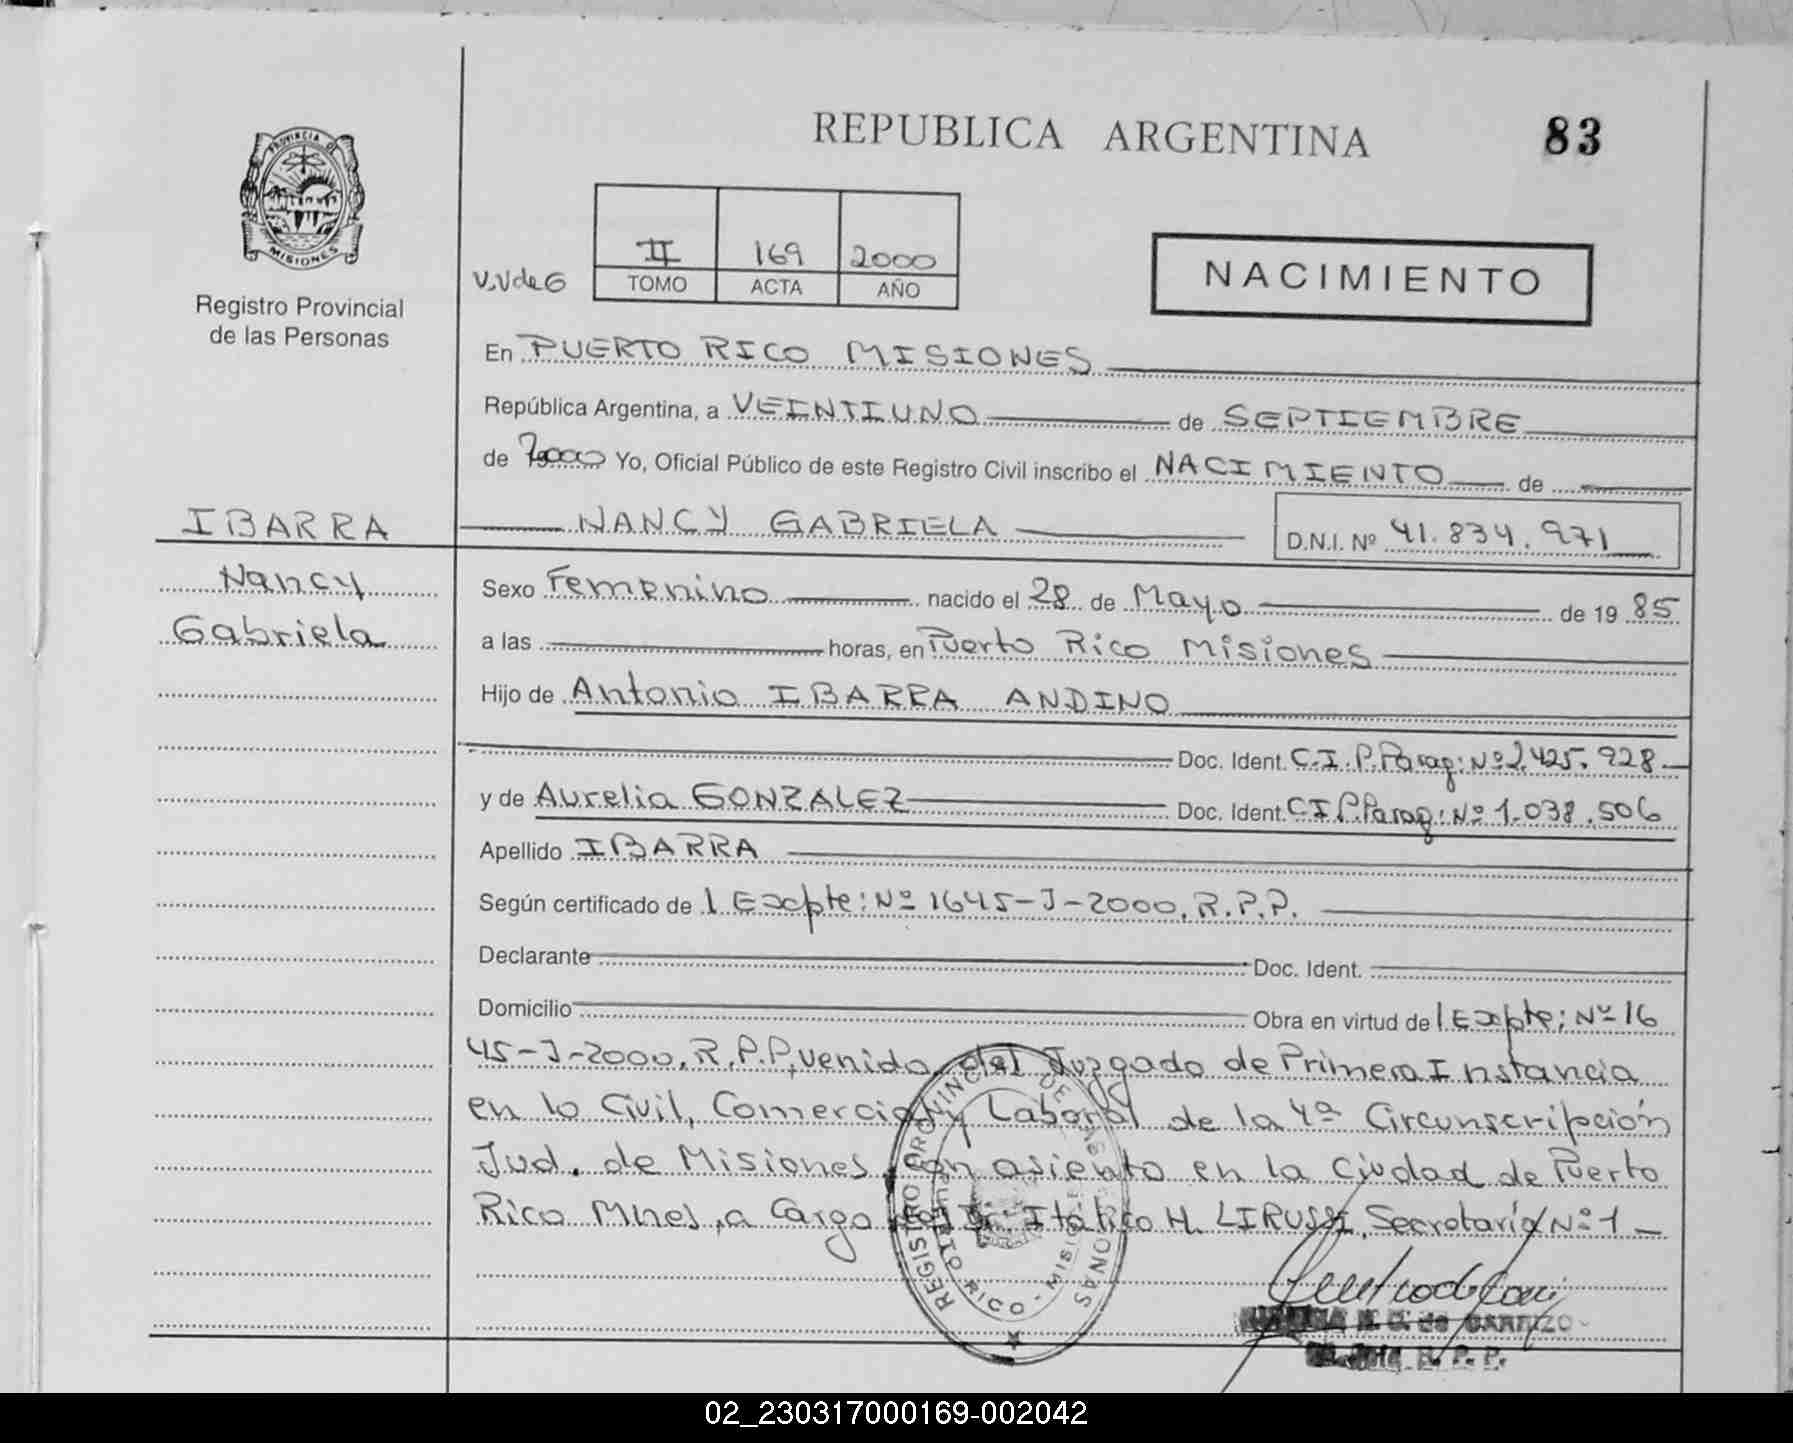 REPUBLICA ARGENTINA
83
PROVINCIA DE
MISIONES
Registro Provincial
de las Personas
V.V de G
II 169 2000
TOMO ACTA AÑO
NACIMIENTO
En PUERTO RICO MISIONES
República Argentina, a VEINTIUNO de SEPTIEMBRE
de 2000 Yo, Oficial Público de este Registro Civil inscribo el NACIMIENTO de
IBARRA
NANCY GABRIELA
D.N.I. Nº 41.834.971
Nancy
Gabriela
Sexo Femenino nacido el 28 de Mayo de 19 85
a las horas, en Puerto Rico Misiones
Hijo de Antonio IBARRA ANDINO
Doc. Ident. C.I.P.Parag: Nº 2.425.928
y de Aurelia GONZALEZ Doc. Ident. CI P.Parag: Nº 1.038.506
Apellido IBARRA
Según certificado de 1 Expte: Nº 1645-J-2000, R.P.P.
Declarante Doc. Ident.
Domicilio Obra en virtud de 1 Expte: Nº 16
45-J-2000, R.P.P, venido del Juzgado de Primera Instancia
en lo Civil, Comercial y Laboral de la 4ª Circunscripción
Jud. de Misiones, con asiento en la ciudad de Puerto
Rico Mnes, a Cargo del Dr. Itálico H. LIRUSSI, Secretaría Nº 1
REGISTRO PROVINCIAL DE LAS PERSONAS
PUERTO RICO - MISIONES
de CARRIZO
R. P. P.
02_230317000169-002042